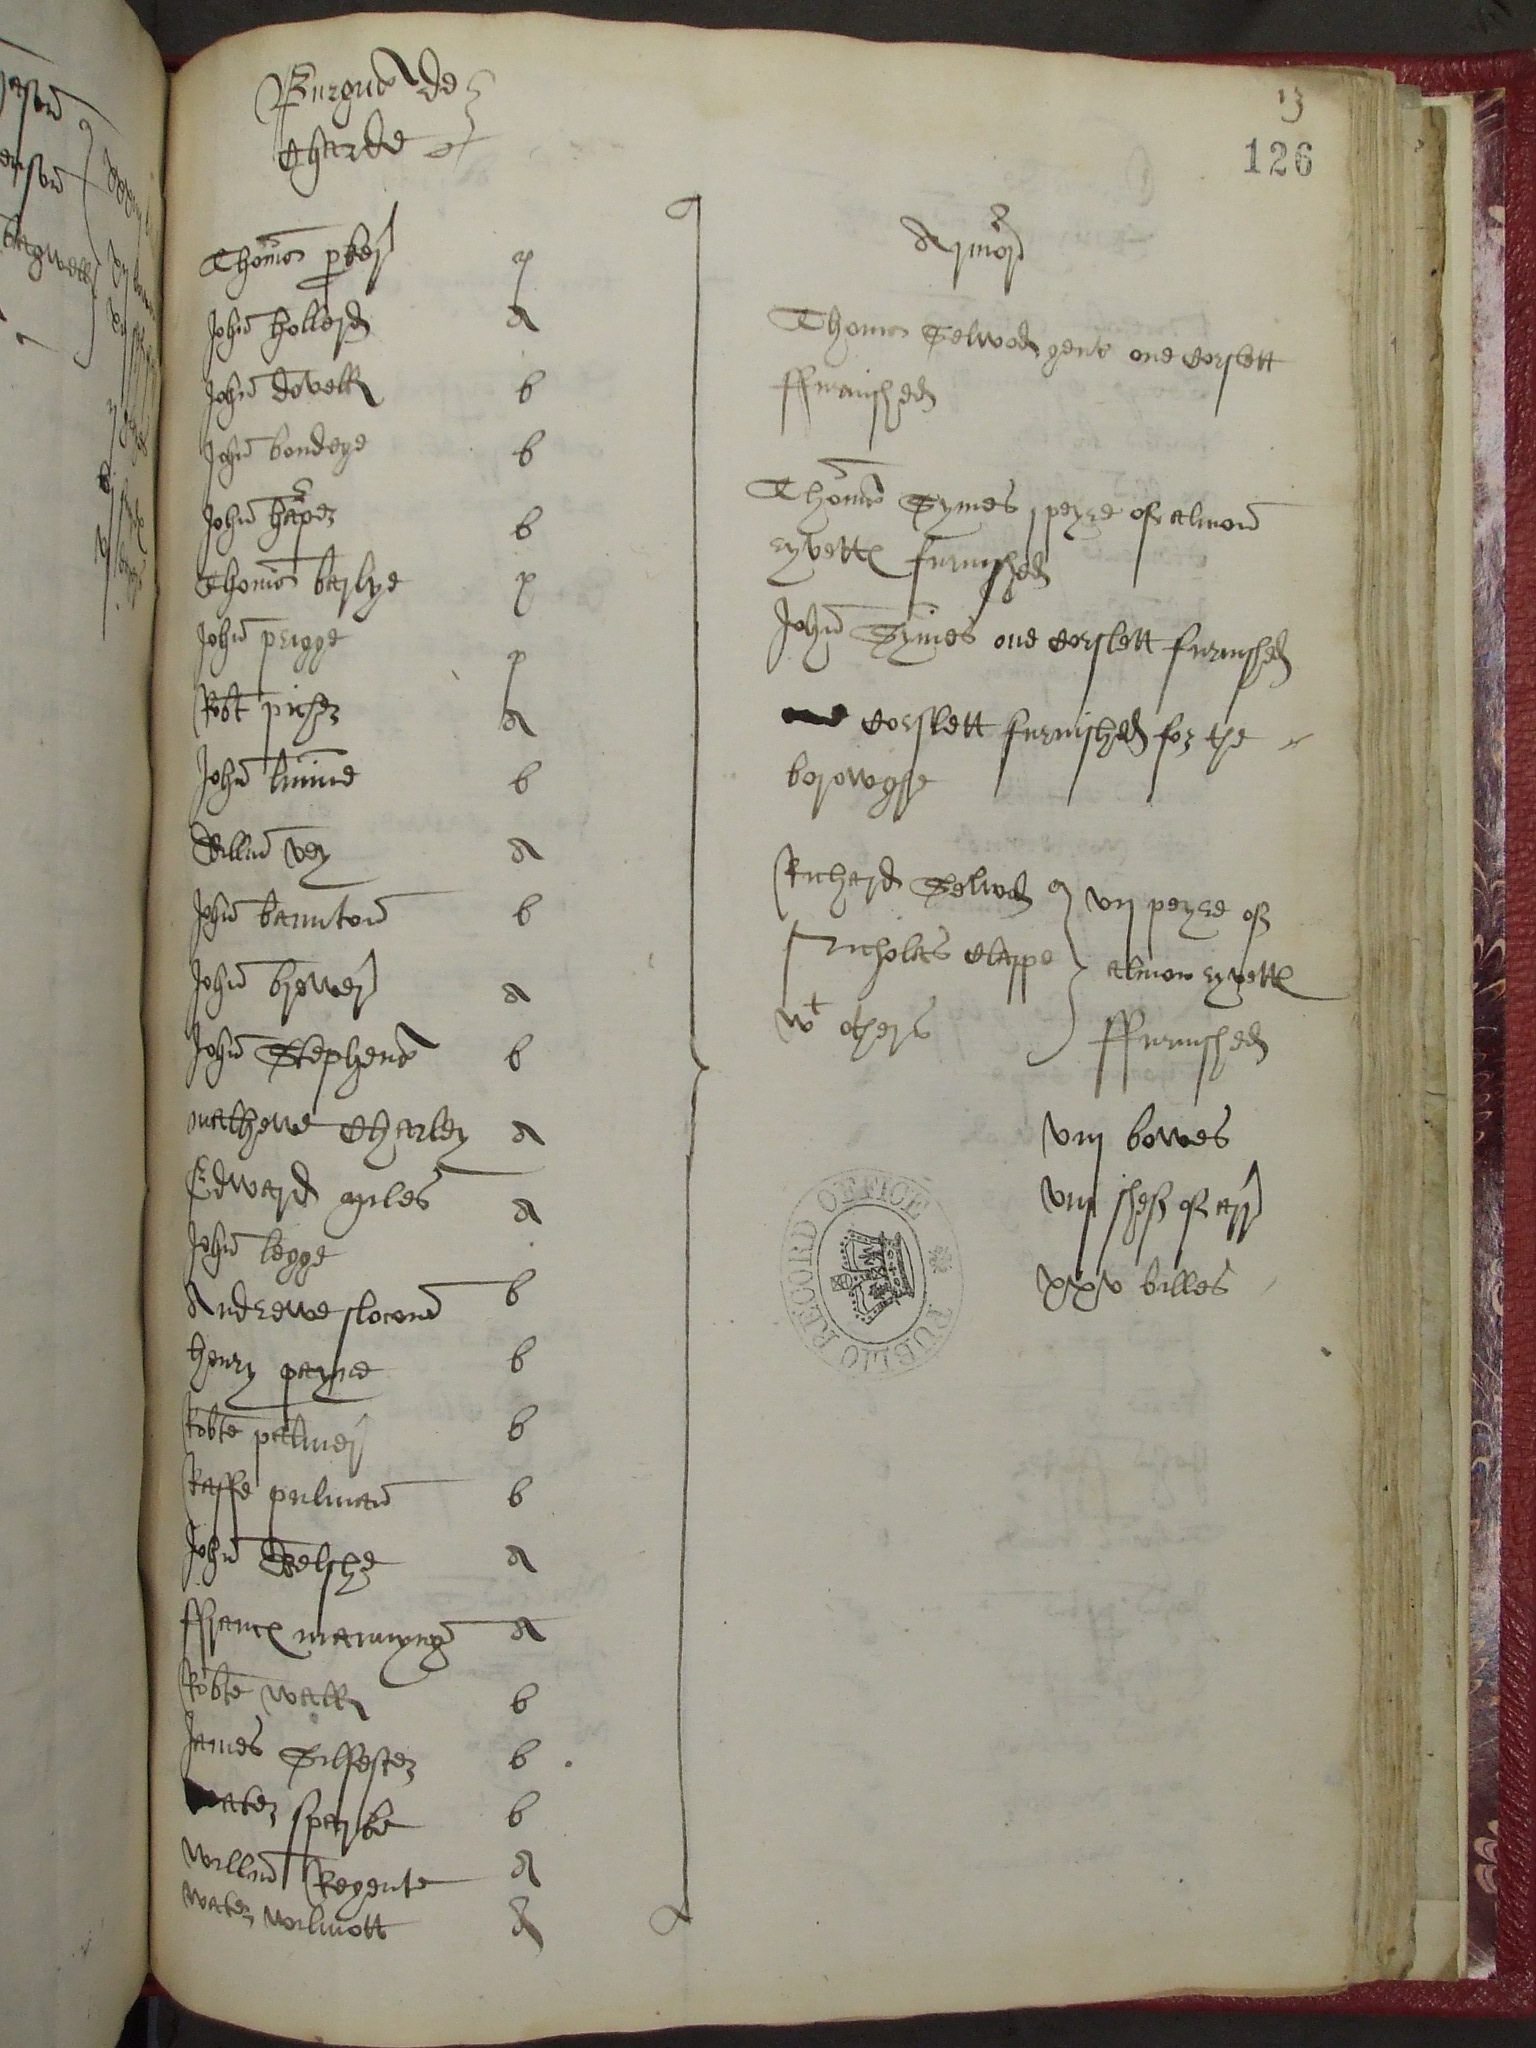 Burgus de
Charde
13
126
Thomas pker p
John hollerd a
John dovell b
John bondeye b
John harper b
Thomas barlye p
John prigge p
Robt picher a
John limme b
Willm vey a
John bampton b
John brower a
John Stephens b
mathewe Charley a
Edward giles a
John legge
Andrewe slocom b
henry payne b
Robte palmer b
Raffe pulman b
John Welshe a
ffranc mannyng a
Robte wall b
James Silfester b
water sparke b
willm Regente a
water wilmott a
Armor
Thomas Selwod gent one corslett
ffurnished
Thomas Symes j peyre of almon
ryvetts furnished
John Symes one corslett furnished
one corslett furnished for the
borowghe
Richard Selwod
Nicholas Clappe
wt others
vij peyre of
almon ryvetts
ffurnished
viij bowes
viij shef of arr
xxv billes
PUBLIC RECORD OFFICE